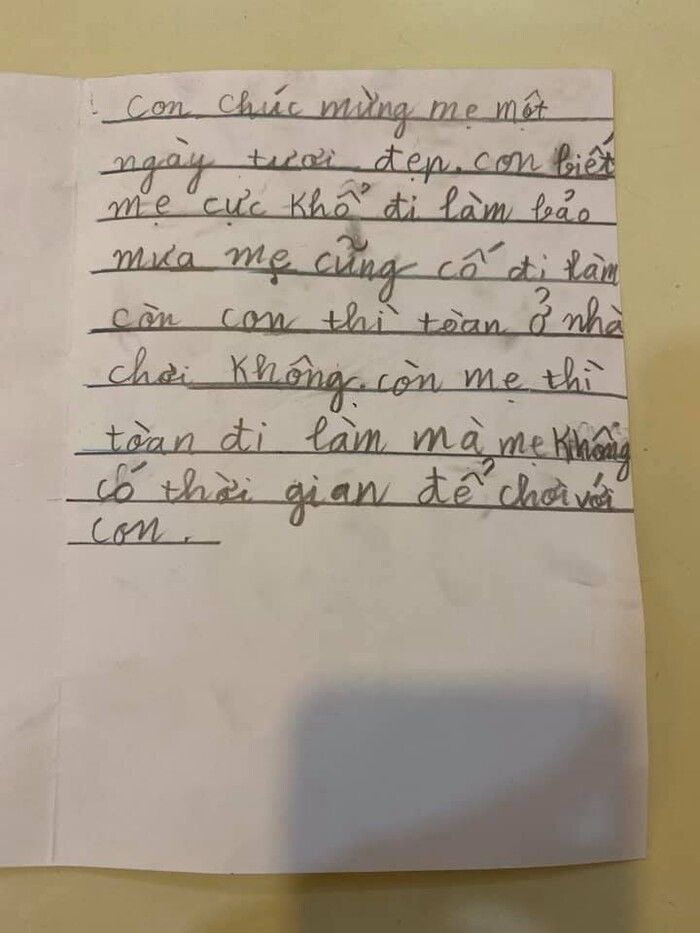 Con chúc mừng mẹ một
ngày tươi đẹp. con biết
mẹ cực khổ đi làm bảo
mưa mẹ cũng cố đi làm
còn con thì tòan ở nhà
chơi không. còn mẹ thì
tòan đi làm mà mẹ không
có thời gian để chơi với
con.